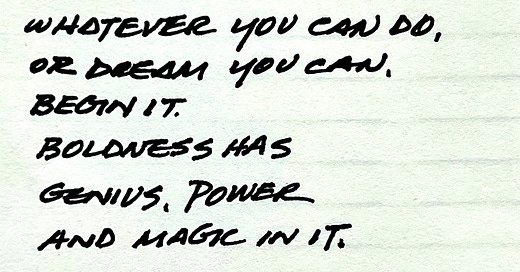 WHATEVER YOU CAN DO,
OR DREAM YOU CAN.
BEGIN IT.
BOLDNESS HAS
GENIUS, POWER
AND MAGIC IN IT.